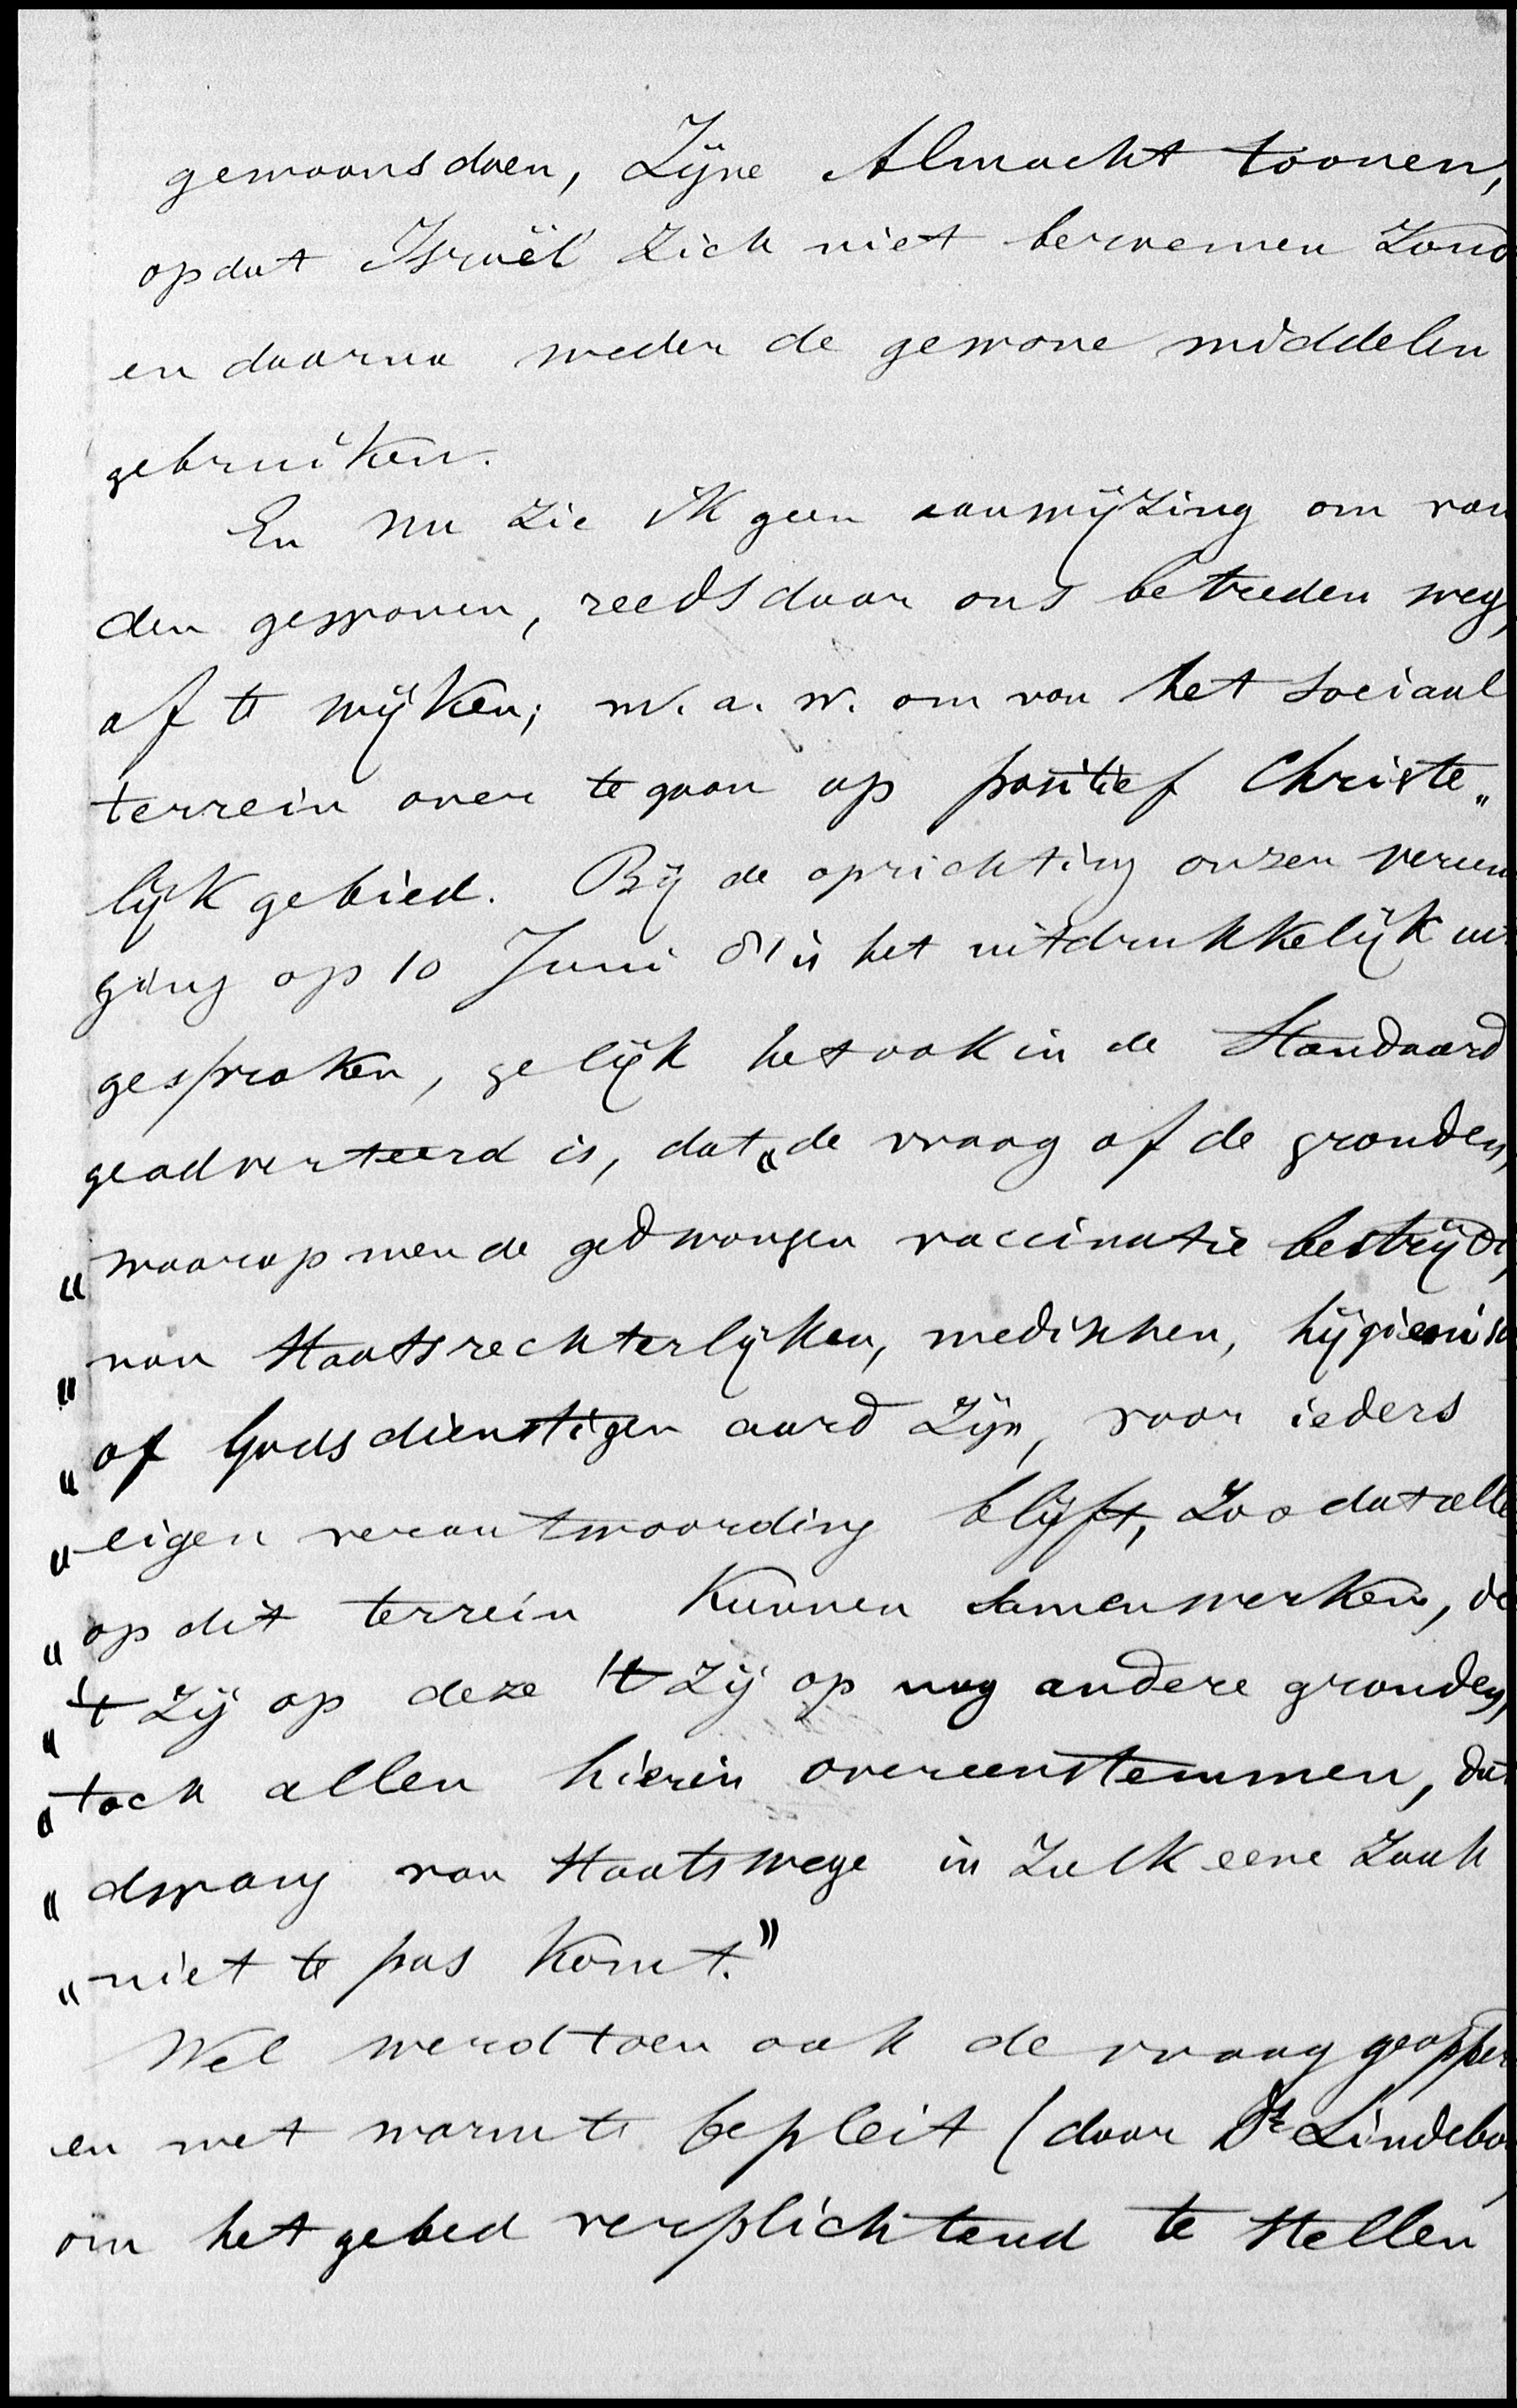 gewoons doen, Zijne Almacht toonen,
opdat Israël zich niet beroemen zoud
en daarna weder de gewone middelen
gebruiken.
En nu zie ik geen aanwijzing om van
den gewonen, reeds door ons betreden weg,
af te wijken; m. a. w. om van het sociaal
terrein over te gaan op positief Christe„
lijk gebied. Bij de oprichting onzer vereen
ging op 10 Juni 81 is het uitdrukkelijk uit
gesproken, gelijk het ook in de Standaard
geadverteerd is, dat „de vraag of de gronden,
„waarop men de gedwongen vaccinatie bestrijdt,
„van Staatsrechterlijken, medikken, hijgienisc
„of Godsdienstigen aard zijn, voor ieders
„eigen verantwoording blijft, zoodat alle
„op dit terrein kunnen samenwerken, de
„'t zij op deze 't zij op nog andere gronden,
„toch allen hierin overeenstemmen, dat
„dwang van Staatswege in zulk eene zaak
„niet te pas komt."
Wel werd toen ook de vraag geopper
en met warmte bepleit (door Ds Lindebo
om het gebed verplichtend te stellen